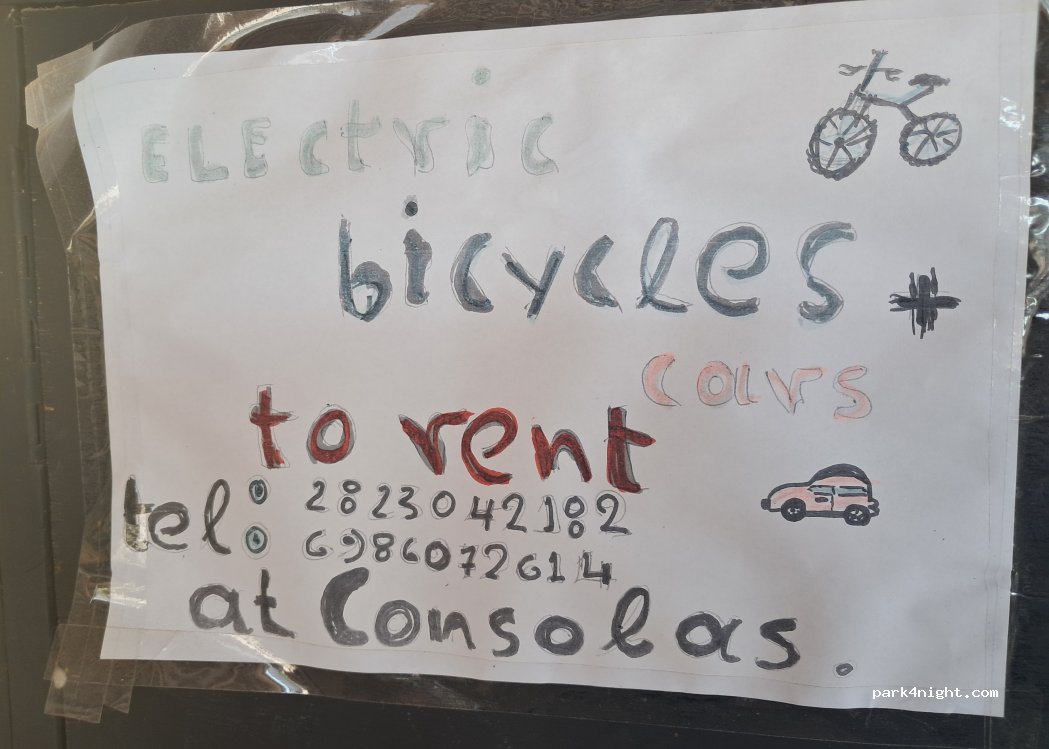 ELEctric
bicycles +
cars
to rent
tel: 2823042182
6986072614
at Consolas.
park4night.com